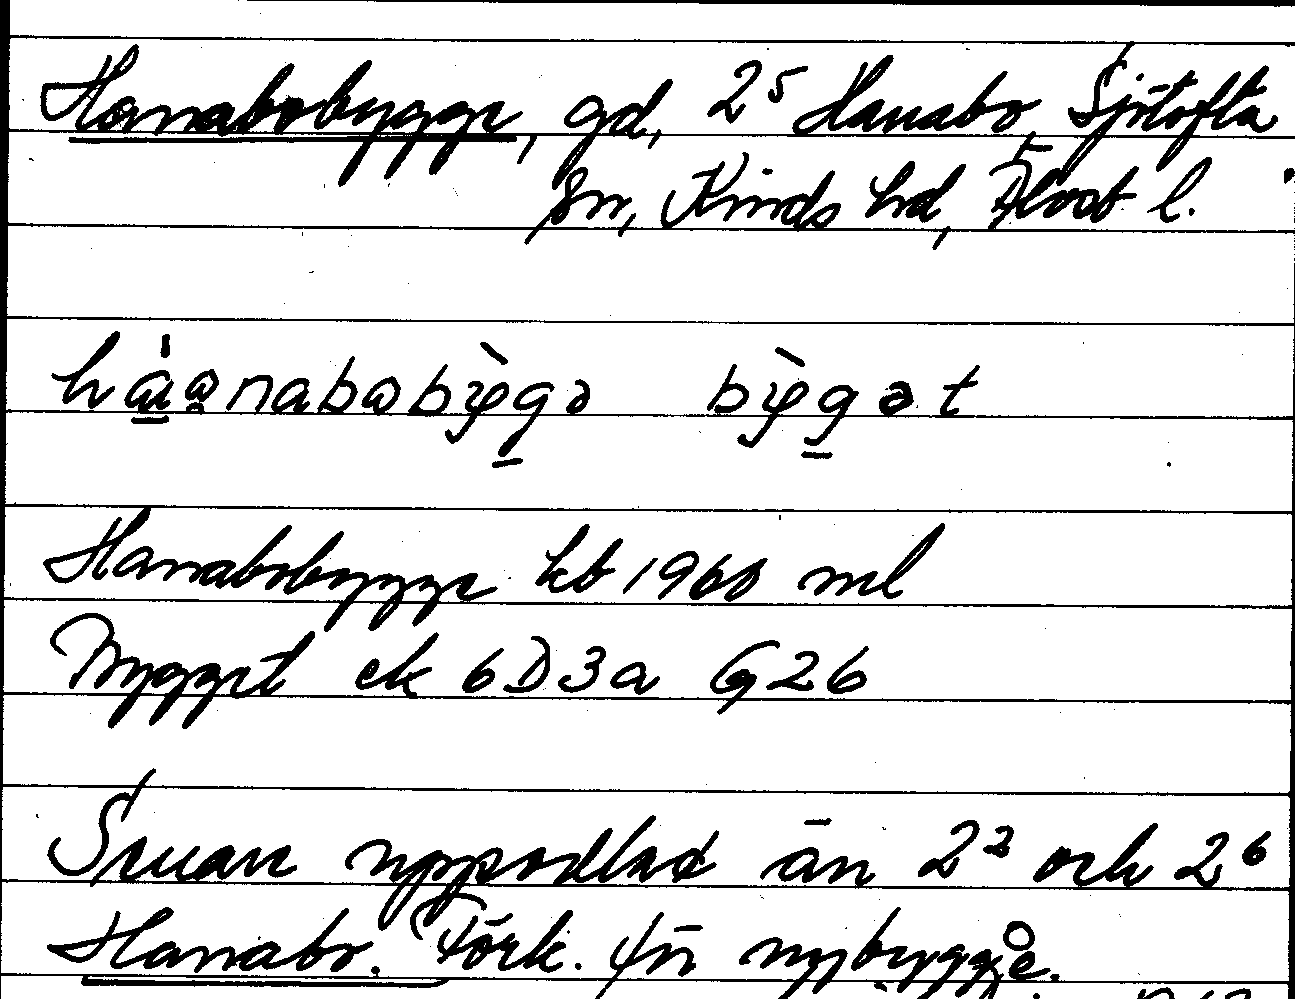 Hanabobygge, gd, 2⁵ Hanabo, Sjötofta
sn, Kinds hd, Älvsb l.
Hanabobygge kb 1960 ml
Bygget ek 6D3a G26
Senare uppodlad än 2² och 2⁶
Hanabo. Förk. fr nybygge.